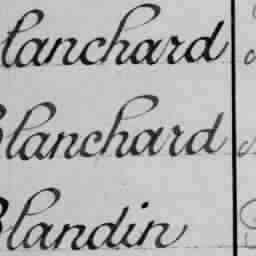 Blanchard
Blanchard
Blandin